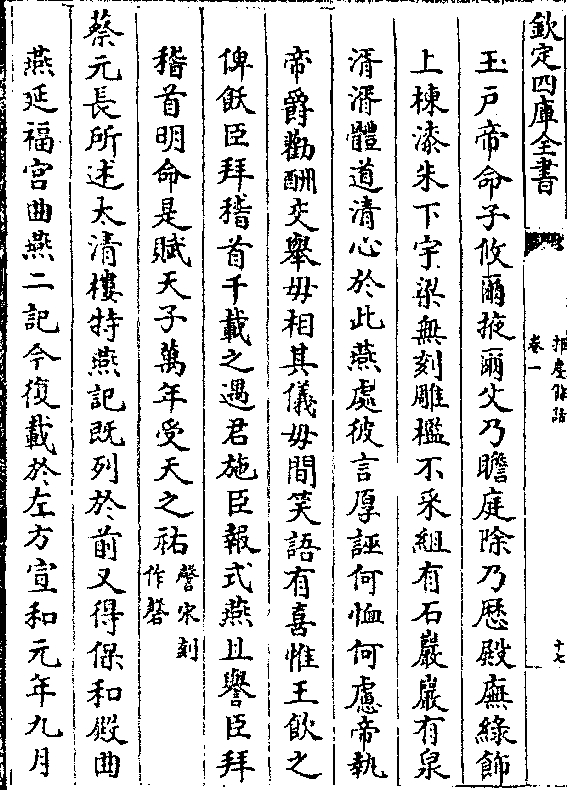 欽定四庫全書
揮麈餘話
卷一
十七
玉戶帝命子攸爾掖爾父乃瞻庭除乃歷殿廡綠飾
上棟漆朱下宇梁無刻雕檻不采組有石巖巖有泉
湑湑體道清心於此燕處彼言厚誣何恤何慮帝執
帝爵勸酬交舉毋相其儀毋間笑語有喜惟王飲之
俾飫臣拜稽首千載之遇君施臣報式燕且譽臣拜
稽首明命是賦天子萬年受天之祐
宋刻
作
蔡元長所述太清樓特燕記既列於前又得保和殿曲
燕延福宮曲燕二記今復載於左方宣和元年九月